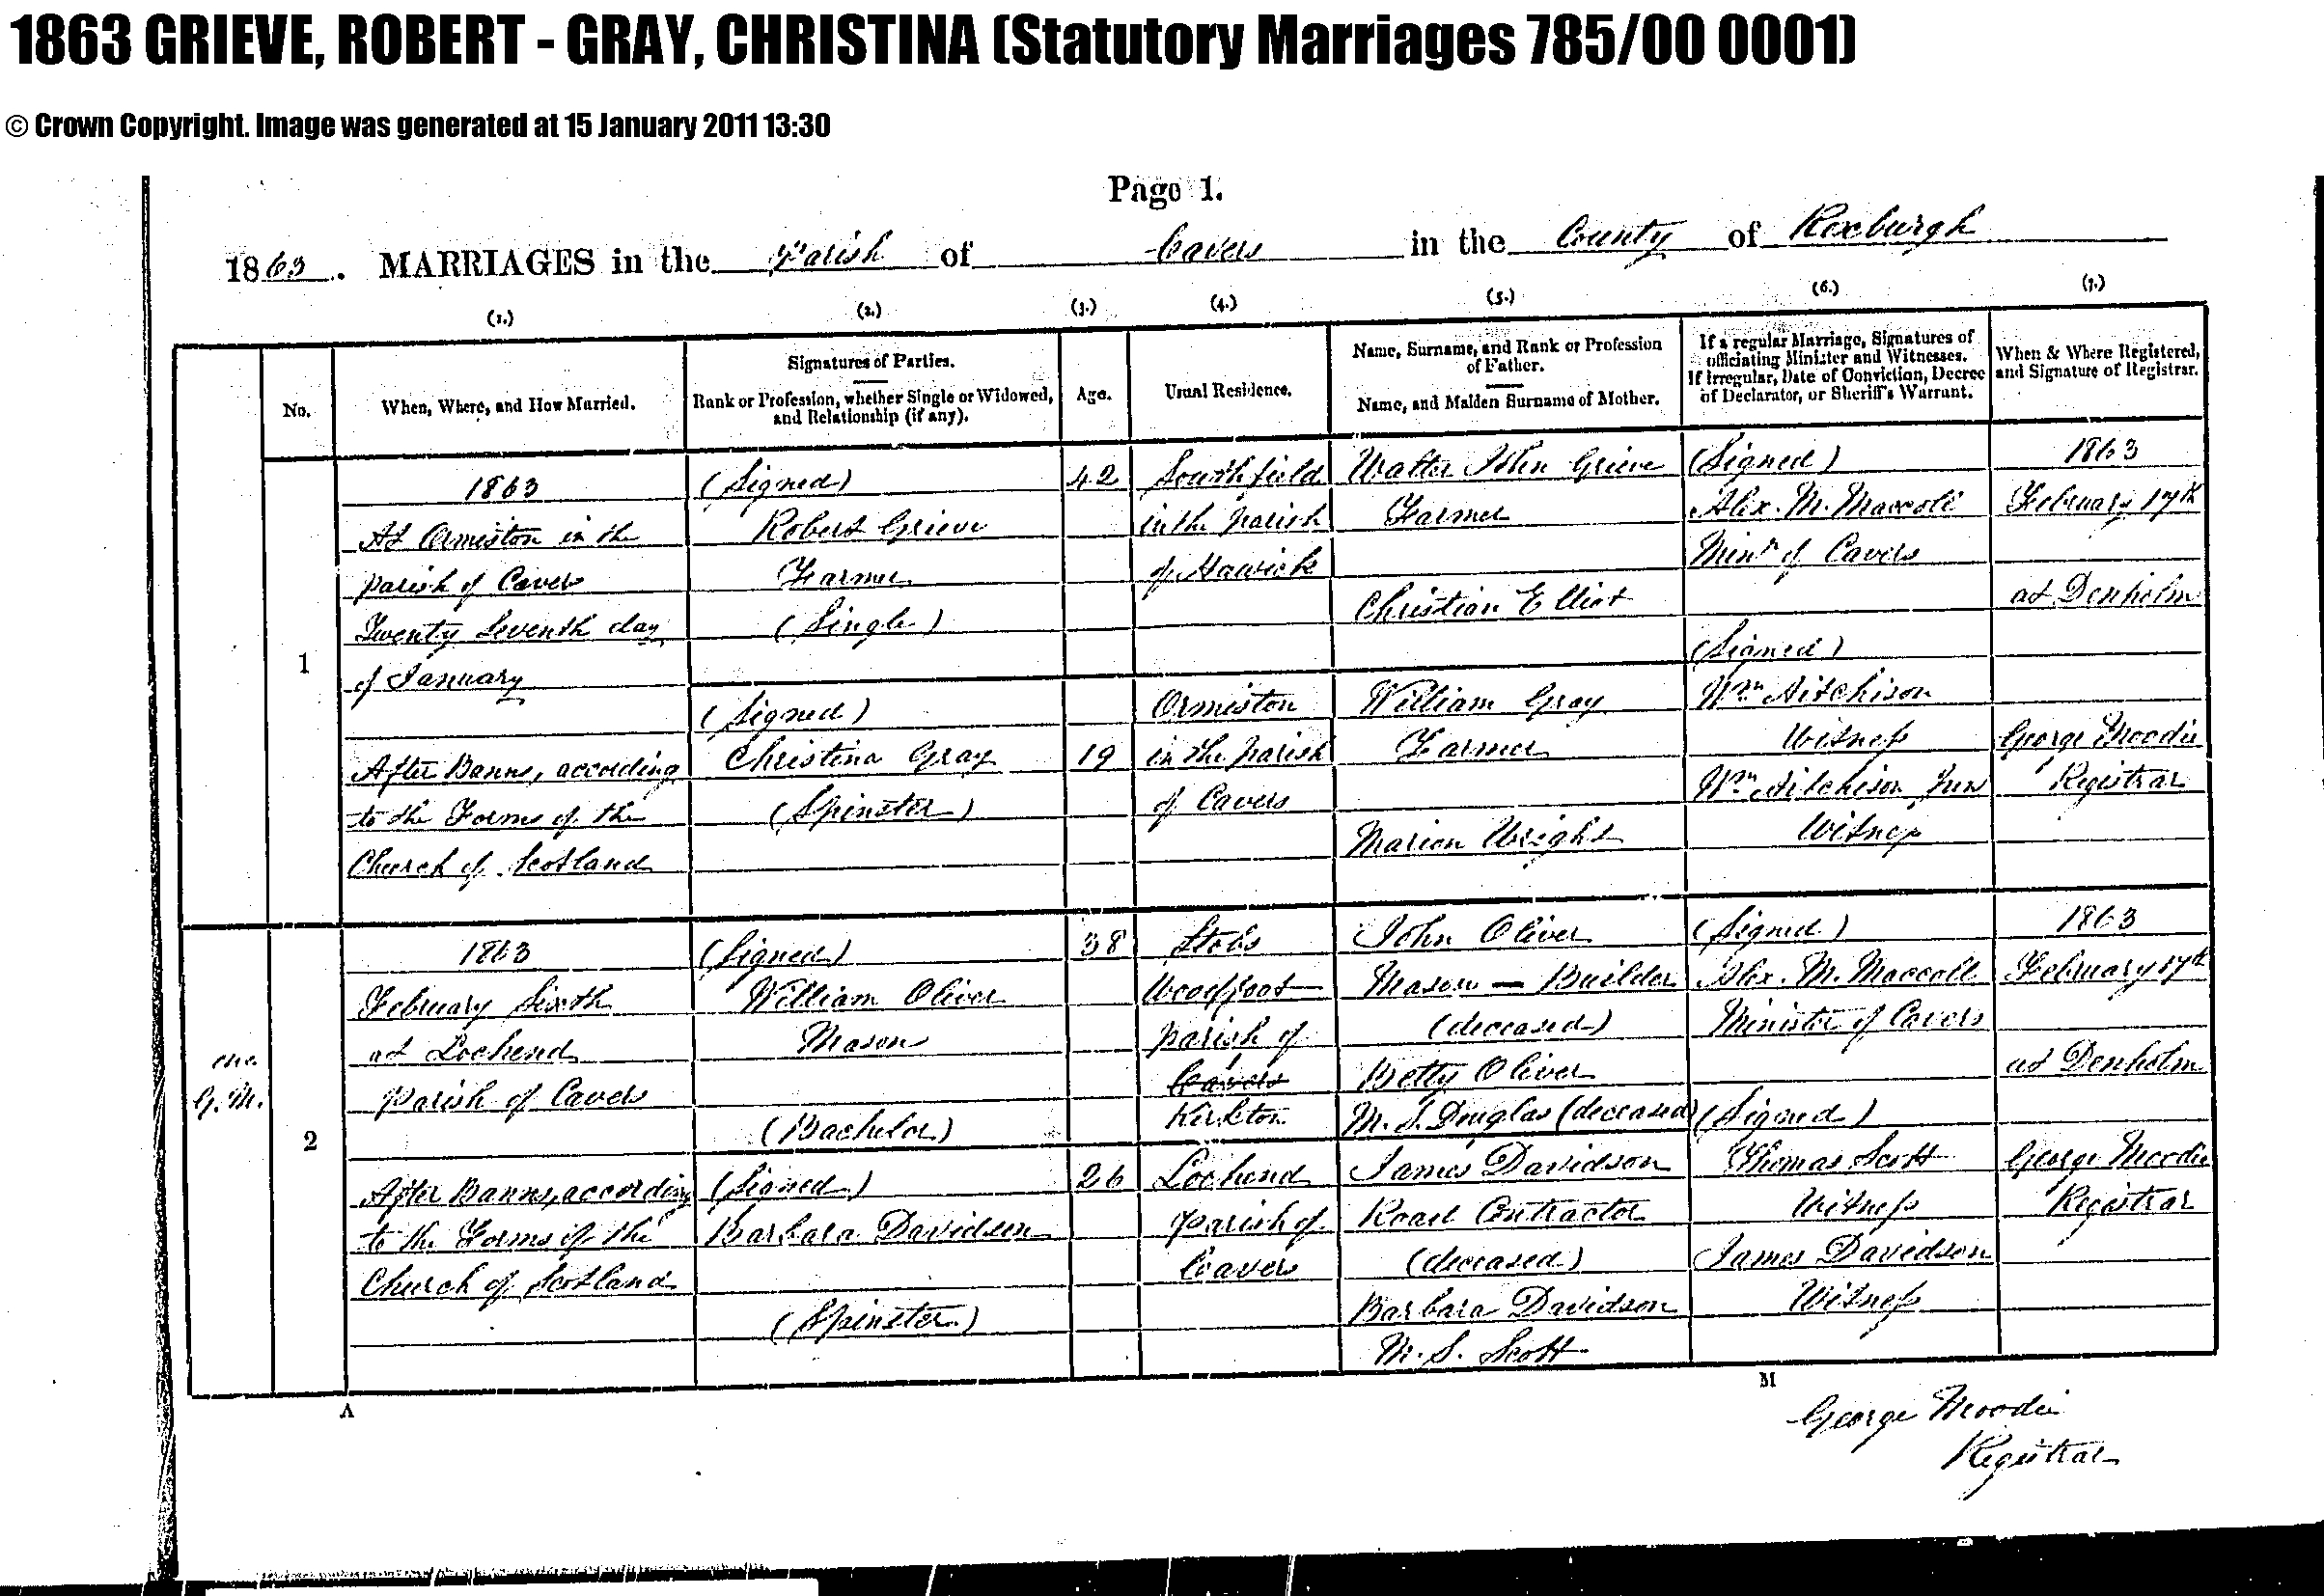 1863 GRIEVE, ROBERT - GRAY, CHRISTINA (Statutory Marriages 785/00 0001)
© Crown Copyright. Image was generated at 15 January 2011 13:30
Page 1.
1863. MARRIAGES in the Parish of Cavers in the County of Roxburgh
(1.) (2.) (3.) (4.) (5.) (6.) (7.)
No.
When, Where, and How Married.
Signatures of Parties.
Rank or Profession, whether Single or Widowed,
and Relationship (if any).
Age.
Usual Residence.
Name, Surname, and Rank or Profession
of Father.
Name, and Maiden Surname of Mother.
If a regular Marriage, Signatures of
officiating Minister and Witnesses.
If irregular, Date of Conviction, Decree
of Declarator, or Sheriff's Warrant.
When & Where Registered,
and Signature of Registrar.
1
1863
At Ormiston in the
parish of Cavers
Twenty Seventh day
of January
After Banns, according
to the Forms of the
Church of Scotland
(Signed)
Robert Grieve
Farmer
(Single)
(Signed)
Christina Gray
(Spinster)
42
19
Southfield
in the parish
of Hawick
Ormiston
in the parish
of Cavers
Walter John Grieve
Farmer
Christian Elliot
William Gray
Farmer
Marion Wright
(Signed)
Alex. M. Maccoll
Minr of Cavers
(Signed)
Wm Aitchison
Witness
Wm Aitchison Jun
Witness
1863
February 17th
at Denholm
George Moodie
Registrar
G. M.
2
1863
February Sixth
at Lochend
parish of Cavers
After Banns, according
to the Forms of the
Church of Scotland
(Signed)
William Oliver
Mason
(Bachelor)
(Signed)
Barbara Davidson
(Spinster)
38
26
Stobs
Woodfoot
parish of
Cavers
Kirkton
Lochend
parish of
Cavers
John Oliver
Mason - Builder
(deceased)
Betty Oliver
M. S. Douglas (deceased)
James Davidson
Road Contractor
(deceased)
Barbara Davidson
M. S. Scott
(Signed)
Alex. M. Maccoll
Minister of Cavers
(Signed)
Thomas Scott
Witness
James Davidson
Witness
1863
February 17th
at Denholm
George Moodie
Registrar
A
M
George Moodie
Registrar